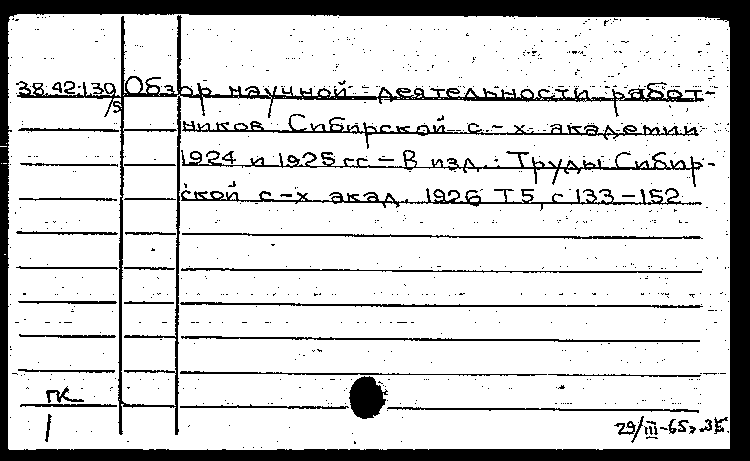 38.42:130 Обзор научной деятельности работ-
/5 ников Сибирской с.-х. академии
1924 и 1925 гг. – В изд.: Труды Сибир-
ской с-х акад. 1926 Т 5, с 133-152
ГК
29/III-65г.